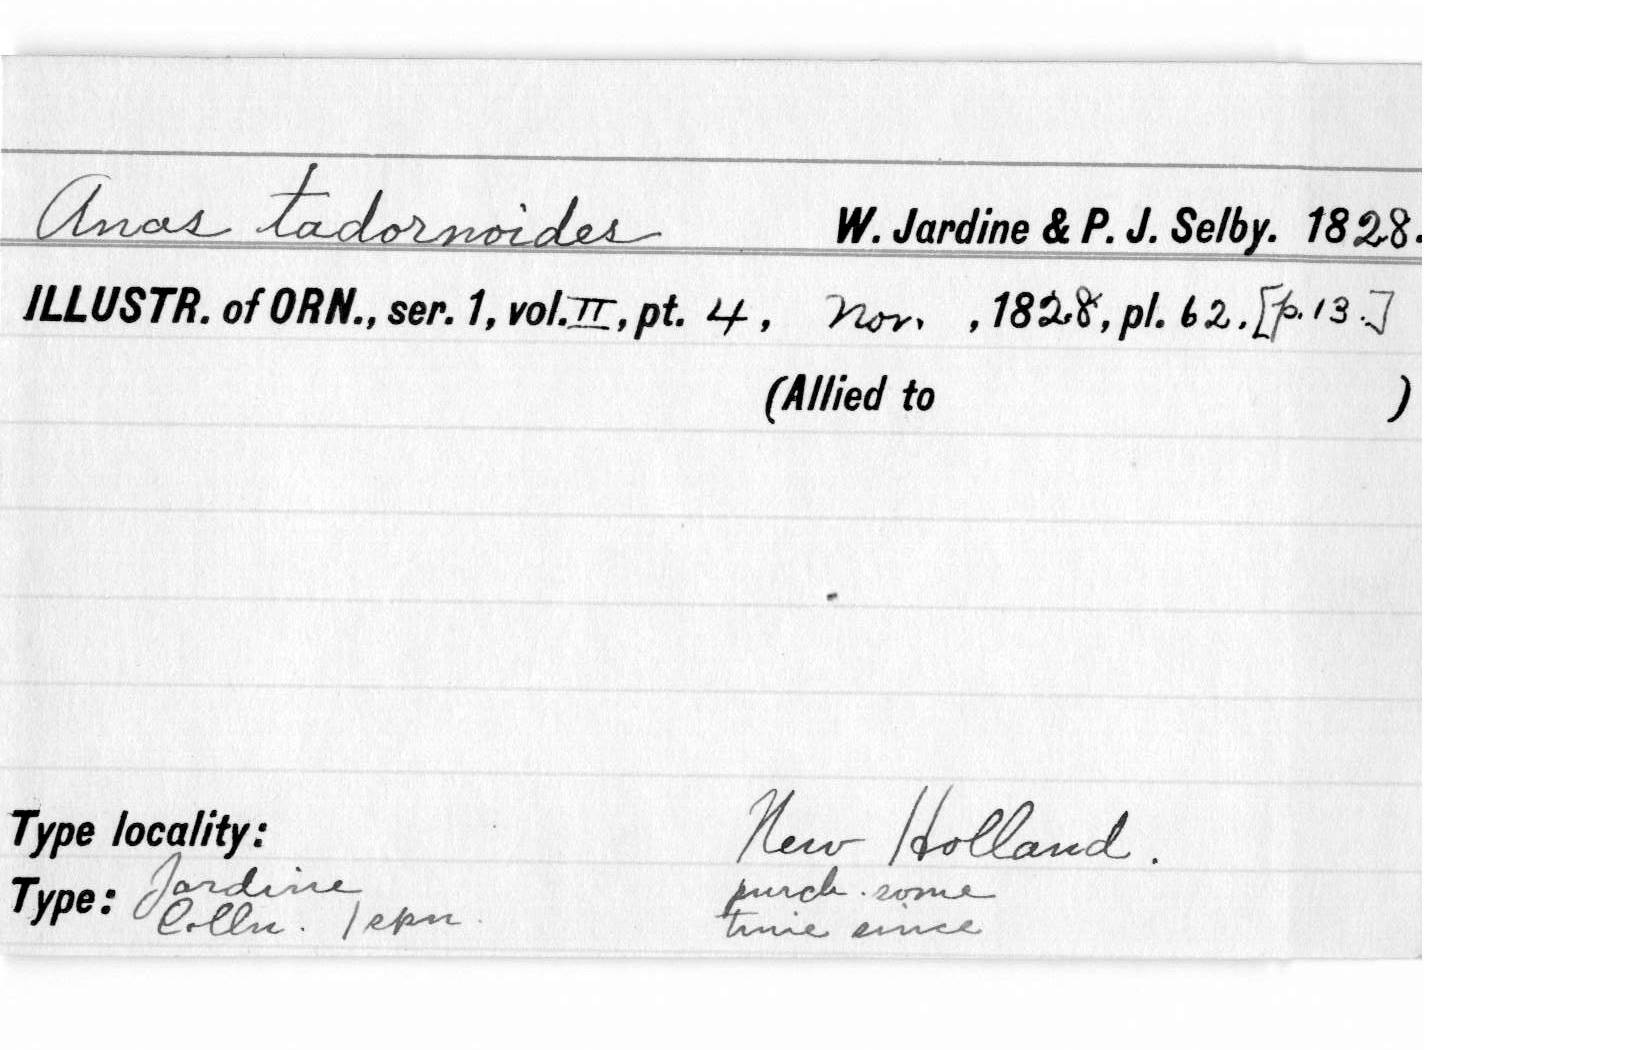 Anas tadornoides W. Jardine & P. J. Selby. 1828.
ILLUSTR. of ORN., ser. 1, vol. II, pt. 4, Nov. , 1828, pl. 62. [p. 13.]
(Allied to )
Type locality: New Holland.
Type: Jardine purch. some
Colln. 1 spn. time since